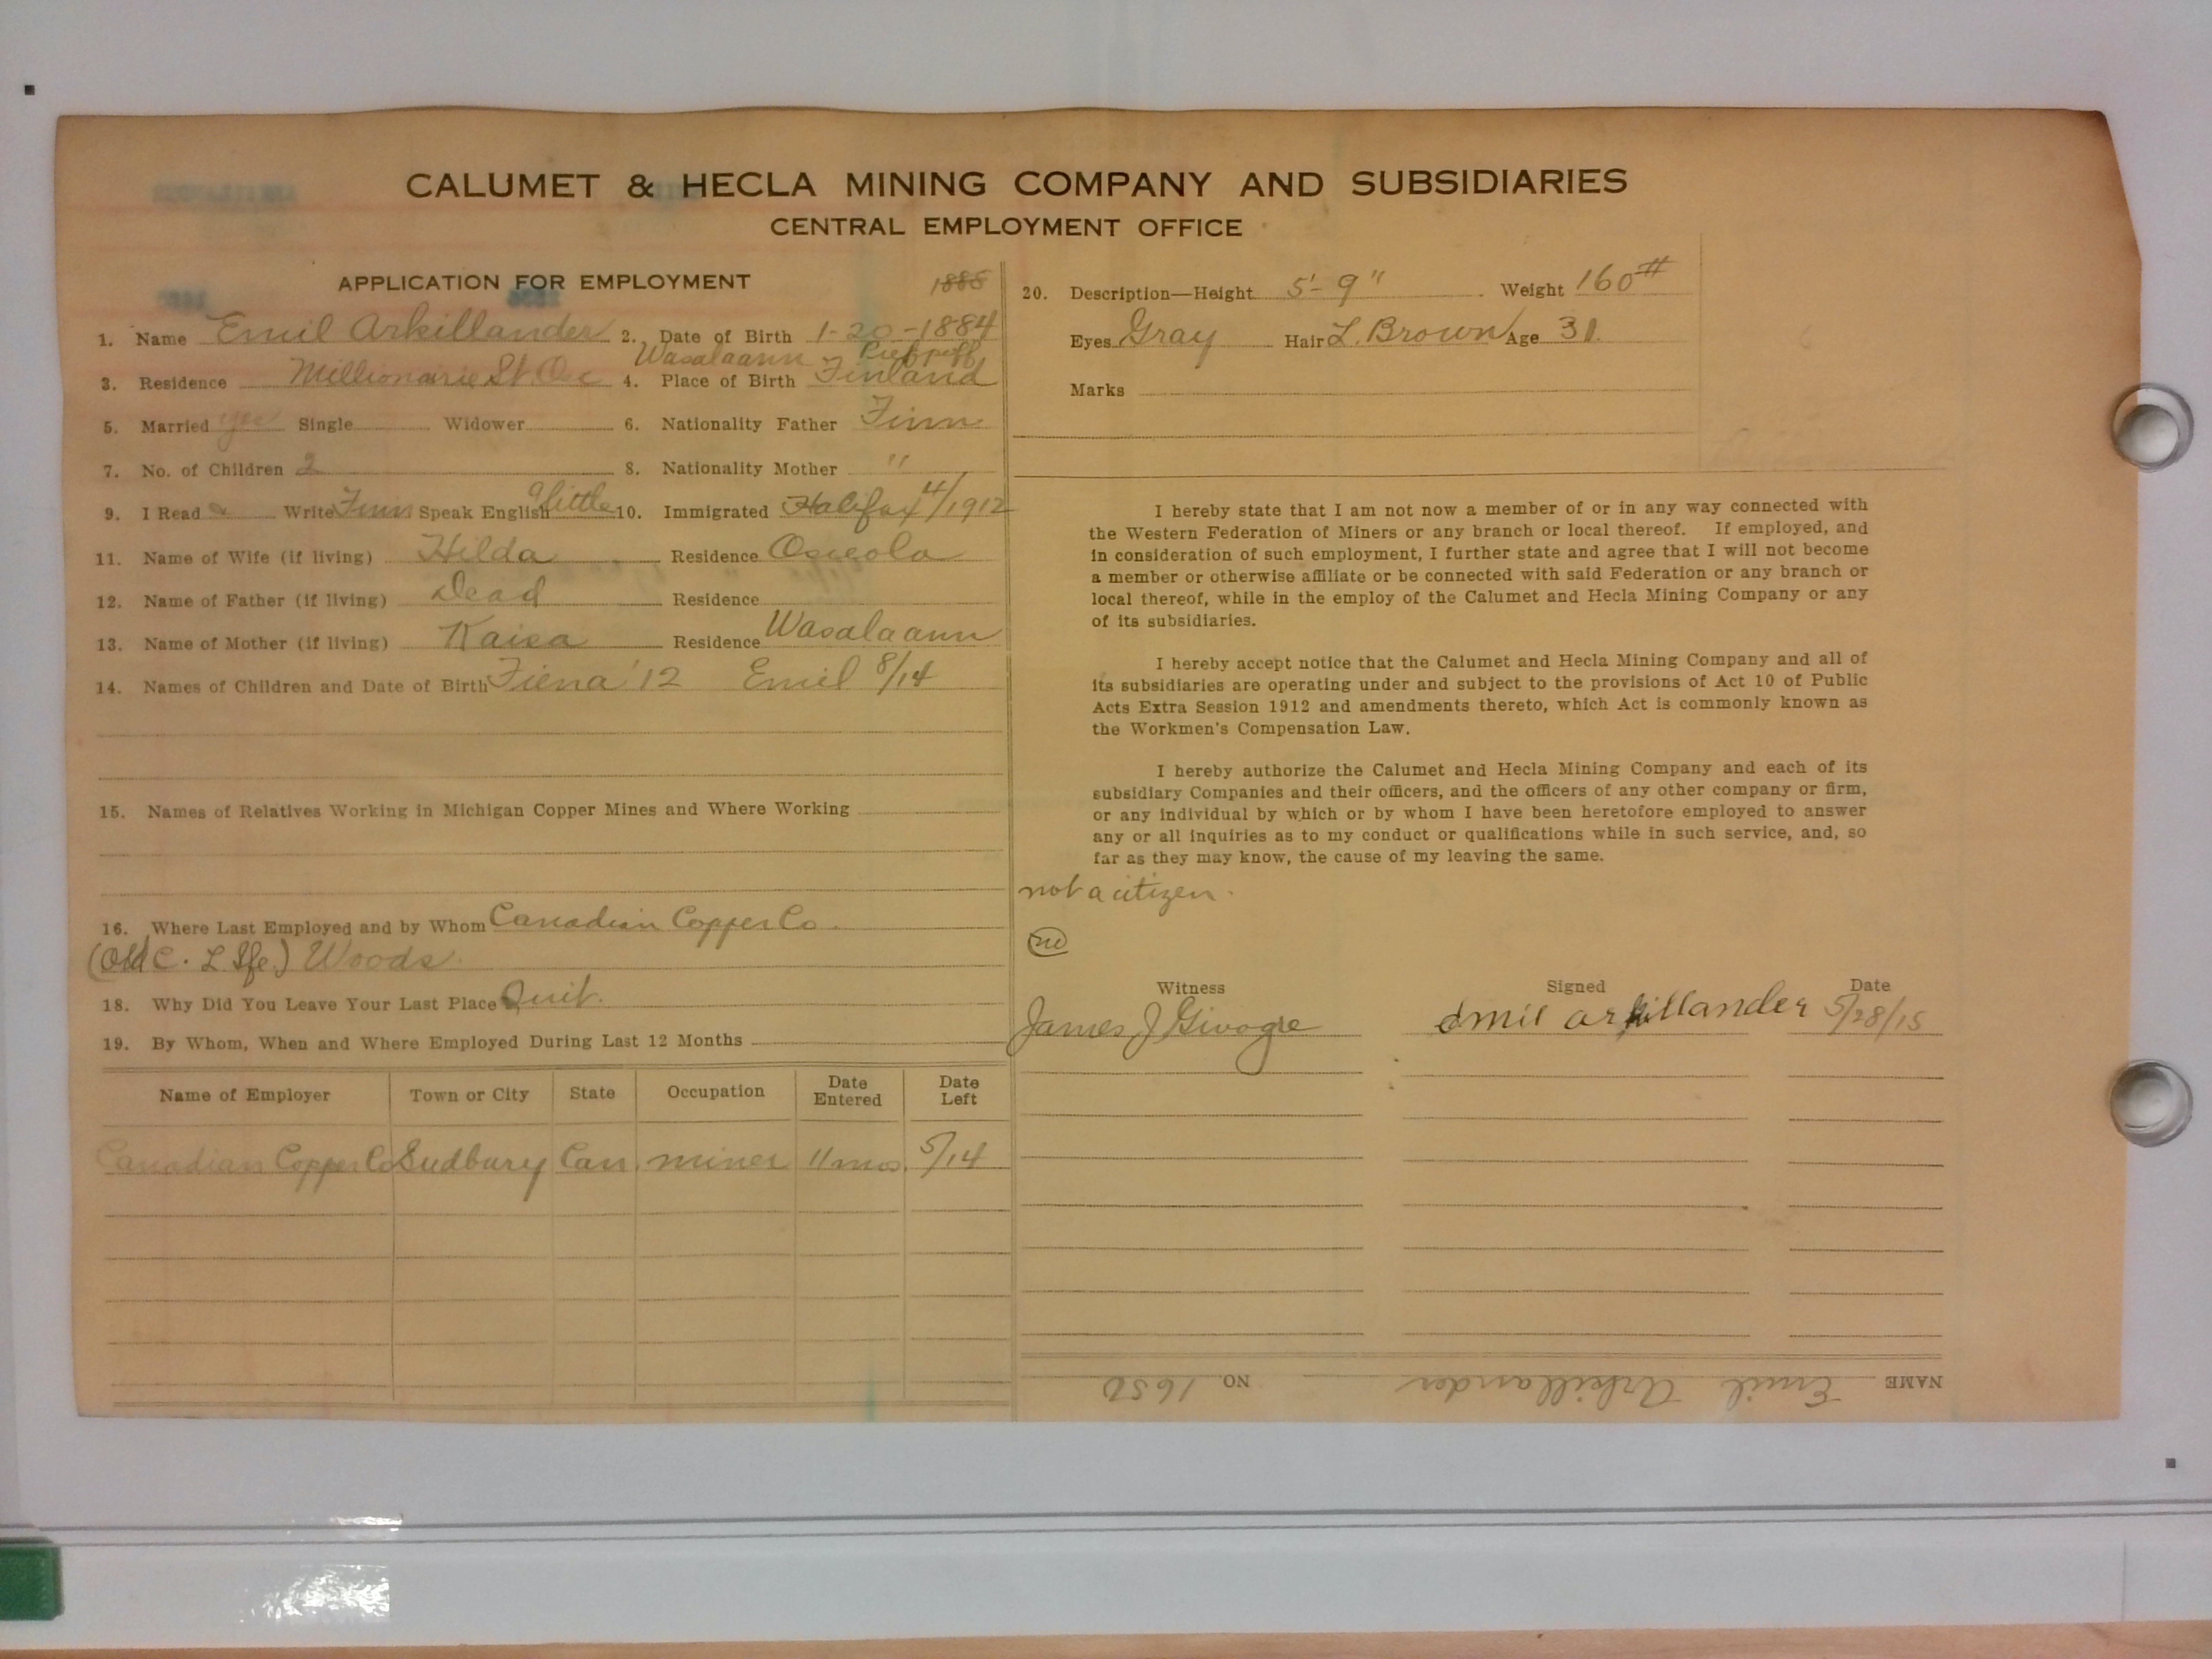 CALUMET & HECLA MINING COMPANY AND SUBSIDIARIES
CENTRAL EMPLOYMENT OFFICE
APPLICATION FOR EMPLOYMENT 1885
1. Name Emil Arkillander 2. Date of Birth 1-20-1884
Wasalaann
3. Residence Millionarie St. Osc 4. Place of Birth Finland
5. Married yes Single Widower 6. Nationality Father Finn
7. No. of Children 2 8. Nationality Mother "
9. I Read & Write Finn Speak English a little 10. Immigrated Halifax 4/1912
11. Name of Wife (if living) Hilda Residence Osceola
12. Name of Father (if living) Dead Residence
13. Name of Mother (if living) Kaisa Residence Wasalaann
14. Names of Children and Date of Birth Fiena '12 Emil 8/14
15. Names of Relatives Working in Michigan Copper Mines and Where Working
16. Where Last Employed and by Whom Canadian Copper Co.
(Old C. L. Sfe.) Woods.
18. Why Did You Leave Your Last Place Quit.
19. By Whom, When and Where Employed During Last 12 Months
Name of Employer Town or City State Occupation Date Entered Date Left
Canadian Copper Co Sudbury Can. miner 11 mos. 5/14
20. Description—Height 5'-9" Weight 160#
Eyes Gray Hair L. Brown Age 31.
Marks
I hereby state that I am not now a member of or in any way connected with
the Western Federation of Miners or any branch or local thereof. If employed, and
in consideration of such employment, I further state and agree that I will not become
a member or otherwise affiliate or be connected with said Federation or any branch or
local thereof, while in the employ of the Calumet and Hecla Mining Company or any
of its subsidiaries.
I hereby accept notice that the Calumet and Hecla Mining Company and all of
its subsidiaries are operating under and subject to the provisions of Act 10 of Public
Acts Extra Session 1912 and amendments thereto, which Act is commonly known as
the Workmen's Compensation Law.
I hereby authorize the Calumet and Hecla Mining Company and each of its
subsidiary Companies and their officers, and the officers of any other company or firm,
or any individual by which or by whom I have been heretofore employed to answer
any or all inquiries as to my conduct or qualifications while in such service, and, so
far as they may know, the cause of my leaving the same.
not a citizen.
Witness Signed Date
James J Givogre Emil arkillander 5/28/15
NAME Emil Arkillander NO. 1650